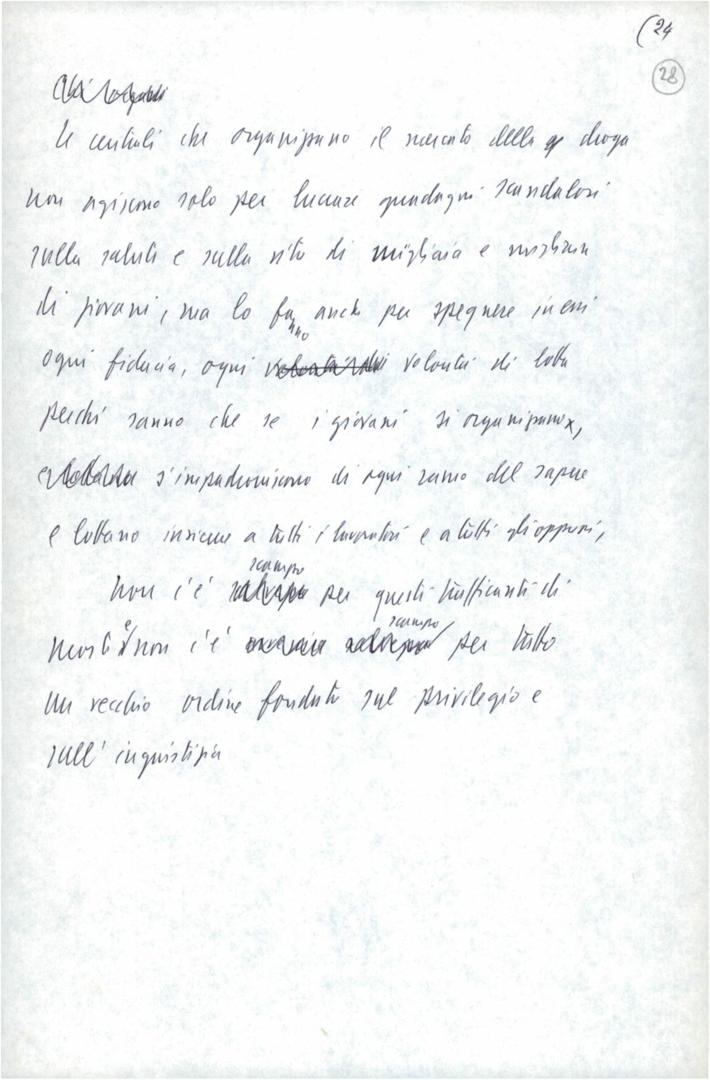 (24
28
Le centrali che organizzano il mercato della droga
non agiscono solo per lucrare guadagni scandalosi
sulla salute e sulla vita di migliaia e migliaia
di giovani, ma lo fanno anche per spegnere in essi
ogni fiducia, ogni volontà di lotta
perché sanno che se i giovani si organizzano,
s'impadroniscono di ogni ramo del sapere
e lottano insieme a tutti i lavoratori e a tutti gli oppressi,
non c'è scampo per questi trafficanti di
morte e non c'è scampo per tutto
un vecchio ordine fondato sul privilegio e
sull'ingiustizia